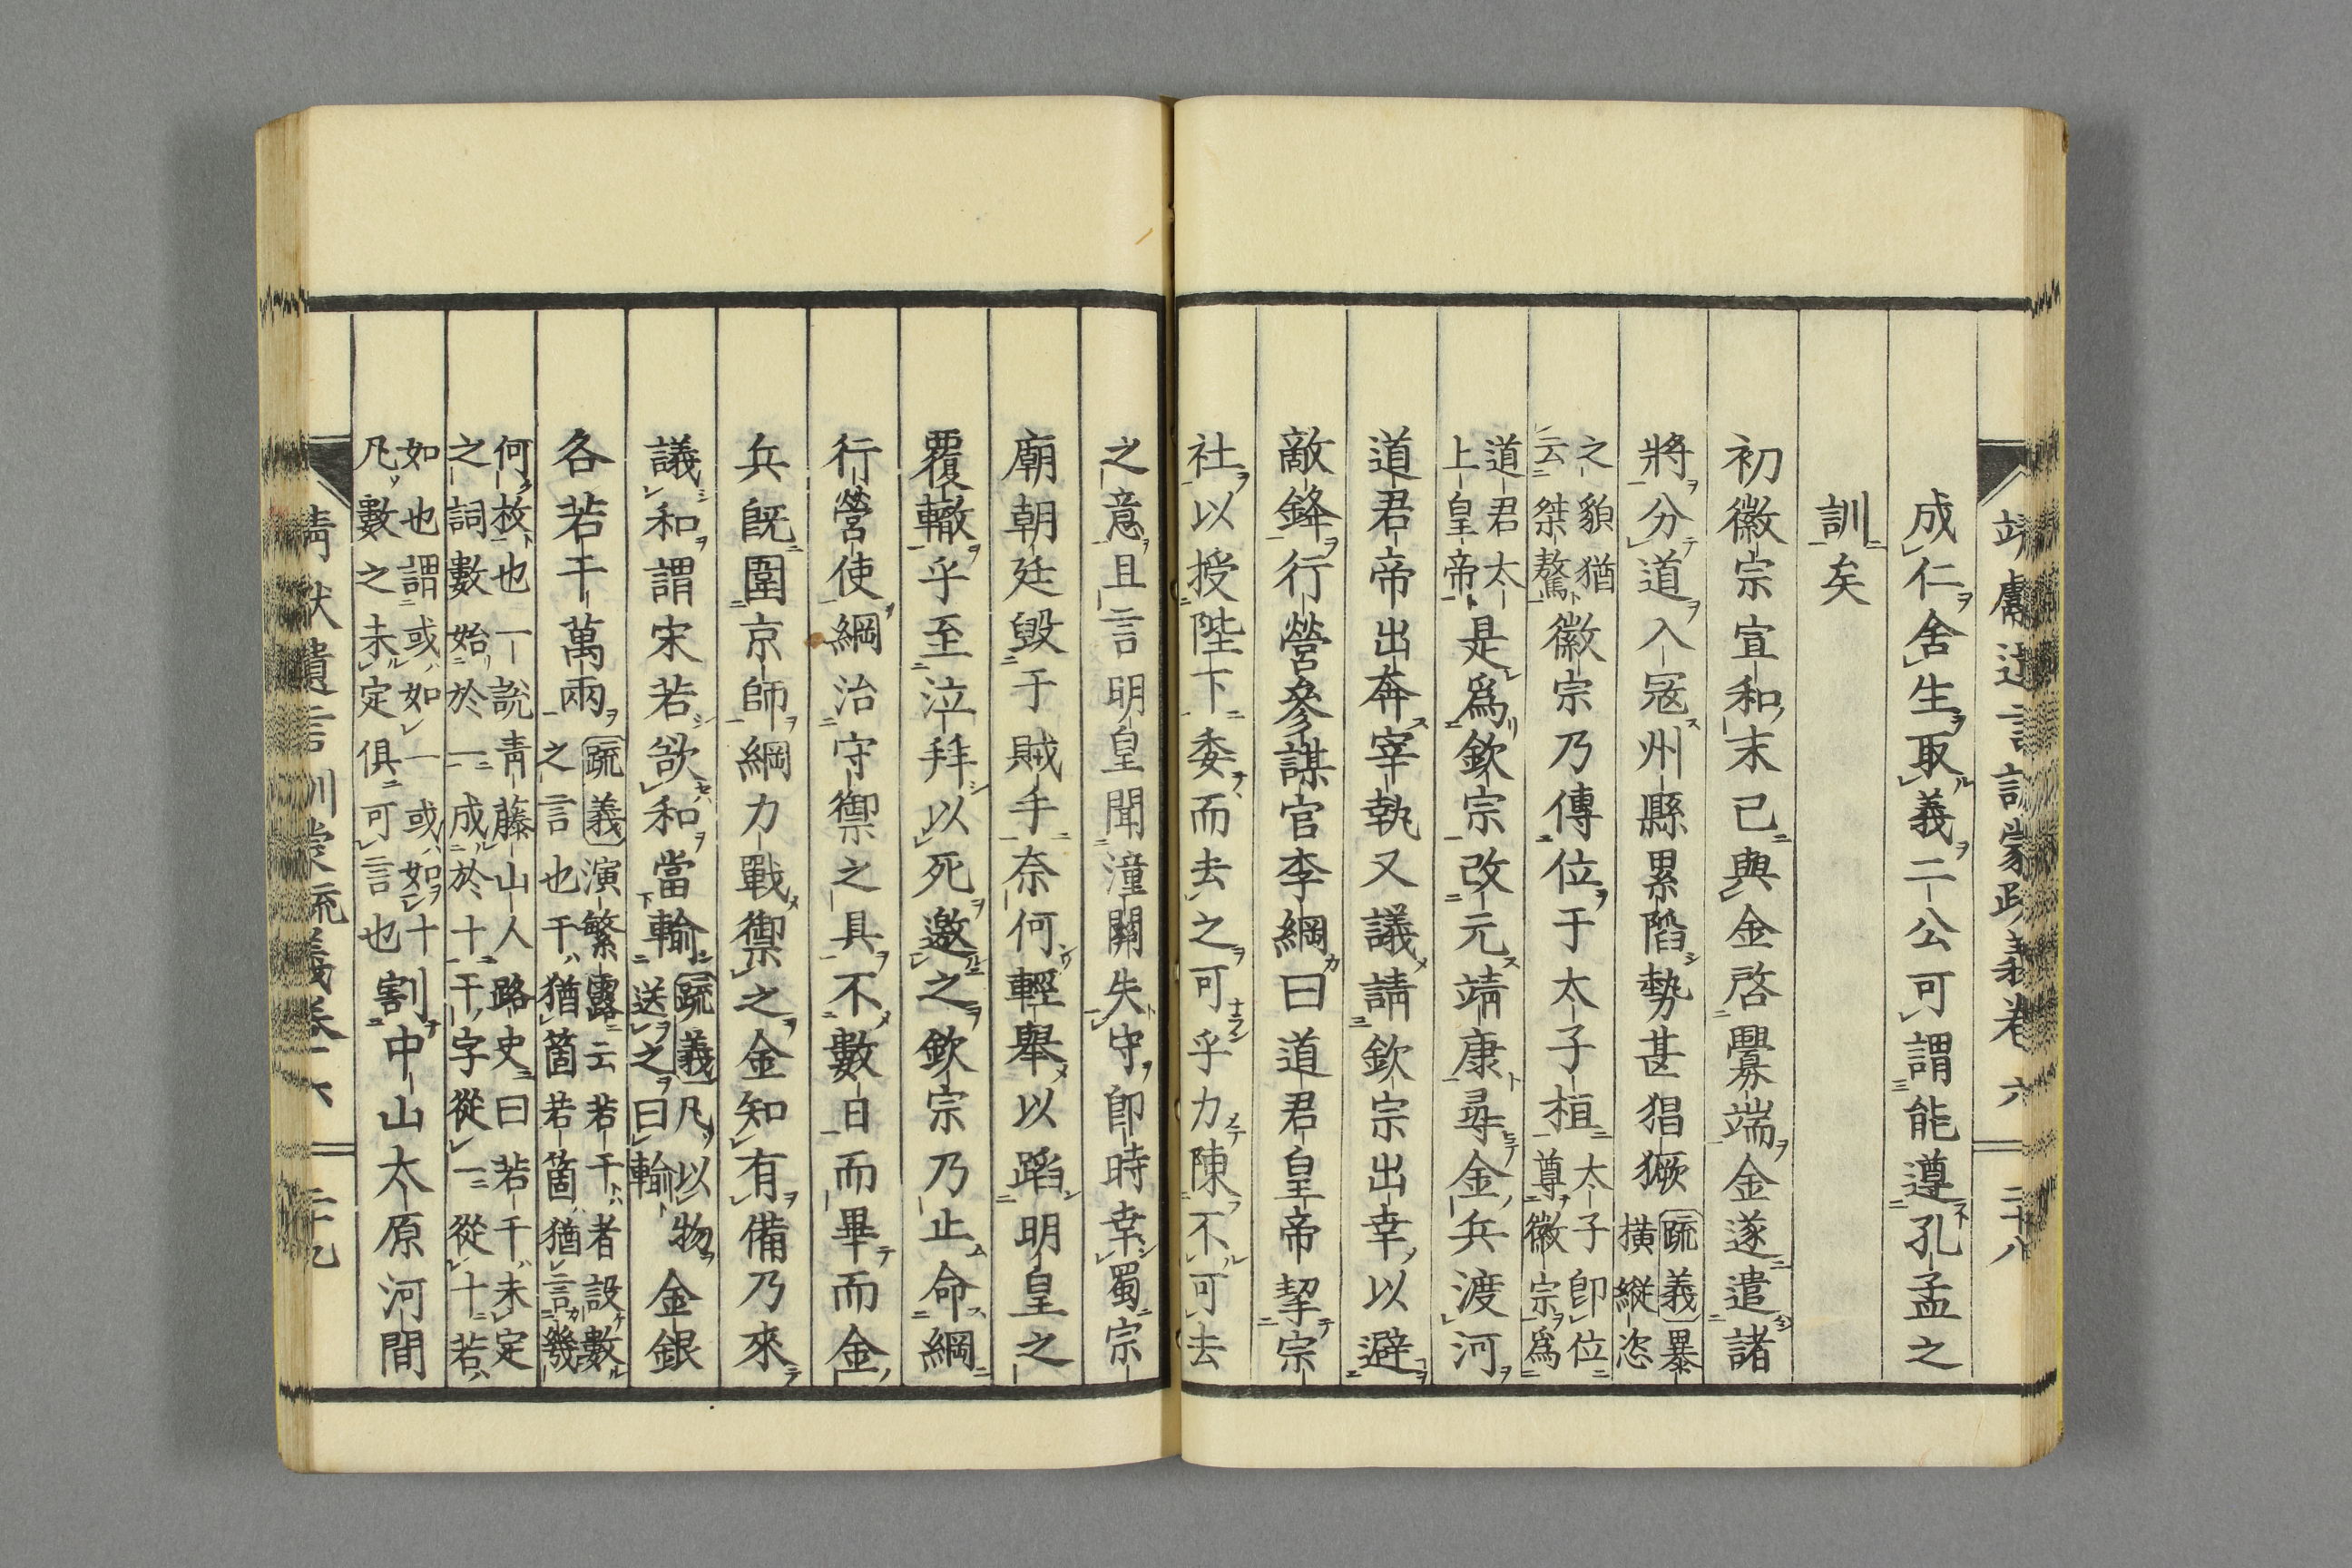 靖獻遺言訓蒙疏義卷六 二十八
成仁舍生取義二公可謂能遵孔孟之
訓矣
初徽宗宣和末已與金啓釁端金遂遣諸
將分道入寇州縣累陷勢甚猖獗疏義暴
橫縱恣
之貌猶
云桀驁徽宗乃傳位于太子桓太子卽位
尊徽宗爲
道君太
上皇帝是爲欽宗改元靖康尋金兵渡河
道君帝出奔宰執又議請欽宗出幸以避
敵鋒行營參謀官李綱曰道君皇帝挈宗
社以授陛下委而去之可乎力陳不可去
之意且言明皇聞潼關失守卽時幸蜀宗
廟朝廷毀于賊手奈何輕舉以蹈明皇之
覆轍乎至泣拜以死邀之欽宗乃止命綱
行營使綱治守禦之具不數日而畢而金
兵既圍京師綱力戰禦之金知有備乃來
議和謂宋若欲和當輸疏義凡以物
送之曰輸金銀
各若干萬兩疏義演繁露云若干者設數
之言也干猶箇若箇猶言幾
何枚也一說青藤山人路史曰若干未定
之詞數始於一成於十干字從一從十若
如也謂或如一或如十
凡數之未定俱可言也割中山太原河間
靖獻遺言訓蒙疏義卷六 二十九